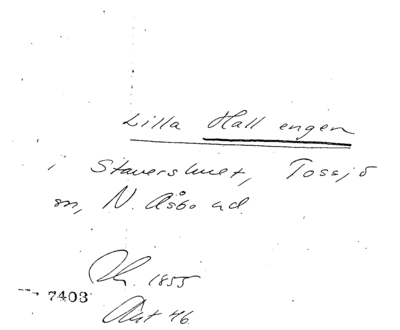 Lilla Hallengen
i Stavershult, Tossjö
sn, N. Åsbo hd.
1855
7403
Akt 46.